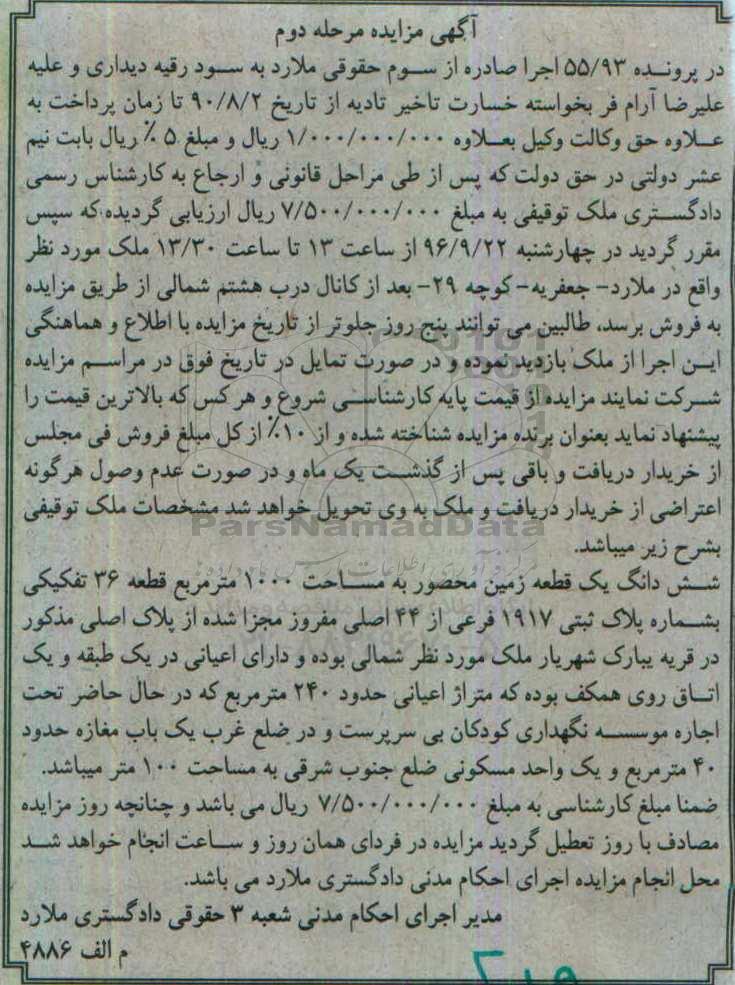 آگهی مزایده مرحله دوم
در پرونده ۵۵/۹۳ اجرا صادره از سوم حقوقی ملارد به سود رقیه دیداری و علیه
علیرضا آرام فر بخواسته خسارت تاخیر تادیه از تاریخ ۹۰/۸/۲ تا زمان پرداخت به
علاوه حق وکالت وکیل بعلاوه ۱/۰۰۰/۰۰۰/۰۰۰ ریال و مبلغ ۵٪ ریال بابت نیم
عشر دولتی در حق دولت که پس از طی مراحل قانونی و ارجاع به کارشناس رسمی
دادگستری ملک توقیفی به مبلغ ۷/۵۰۰/۰۰۰/۰۰۰ ریال ارزیابی گردیده که سپس
مقرر گردید در چهارشنبه ۹۶/۹/۲۲ از ساعت ۱۳ تا ساعت ۱۳/۳۰ ملک مورد نظر
واقع در ملارد- جعفریه- کوچه ۲۹- بعد از کانال درب هشتم شمالی از طریق مزایده
به فروش برسد، طالبین می توانند پنج روز جلوتر از تاریخ مزایده با اطلاع و هماهنگی
این اجرا از ملک بازدید نموده و در صورت تمایل در تاریخ فوق در مراسم مزایده
شرکت نمایند مزایده از قیمت پایه کارشناسی شروع و هر کس که بالاترین قیمت را
پیشنهاد نماید بعنوان برنده مزایده شناخته شده و از ۱۰٪ از کل مبلغ فروش فی مجلس
از خریدار دریافت و باقی پس از گذشت یک ماه و در صورت عدم وصول هرگونه
اعتراضی از خریدار دریافت و ملک به وی تحویل خواهد شد مشخصات ملک توقیفی
ParsNamadData
بشرح زیر میباشد.
شش دانگ یک قطعه زمین محصور به مساحت ۱۰۰۰ مترمربع قطعه ۳۶ تفکیکی
بشماره پلاک ثبتی ۱۹۱۷ فرعی از ۴۴ اصلی مفروز مجزا شده از پلاک اصلی مذکور
در قریه یبارک شهریار ملک مورد نظر شمالی بوده و دارای اعیانی در یک طبقه و یک
اتاق روی همکف بوده که متراژ اعیانی حدود ۲۴۰ مترمربع که در حال حاضر تحت
اجاره موسسه نگهداری کودکان بی سرپرست و در ضلع غرب یک باب مغازه حدود
۴۰ مترمربع و یک واحد مسکونی ضلع جنوب شرقی به مساحت ۱۰۰ متر میباشد.
ضمنا مبلغ کارشناسی به مبلغ ۷/۵۰۰/۰۰۰/۰۰۰ ریال می باشد و چنانچه روز مزایده
مصادف با روز تعطیل گردید مزایده در فردای همان روز و ساعت انجام خواهد شد
محل انجام مزایده اجرای احکام مدنی دادگستری ملارد می باشد.
مدیر اجرای احکام مدنی شعبه ۳ حقوقی دادگستری ملارد
م الف ۴۸۸۶